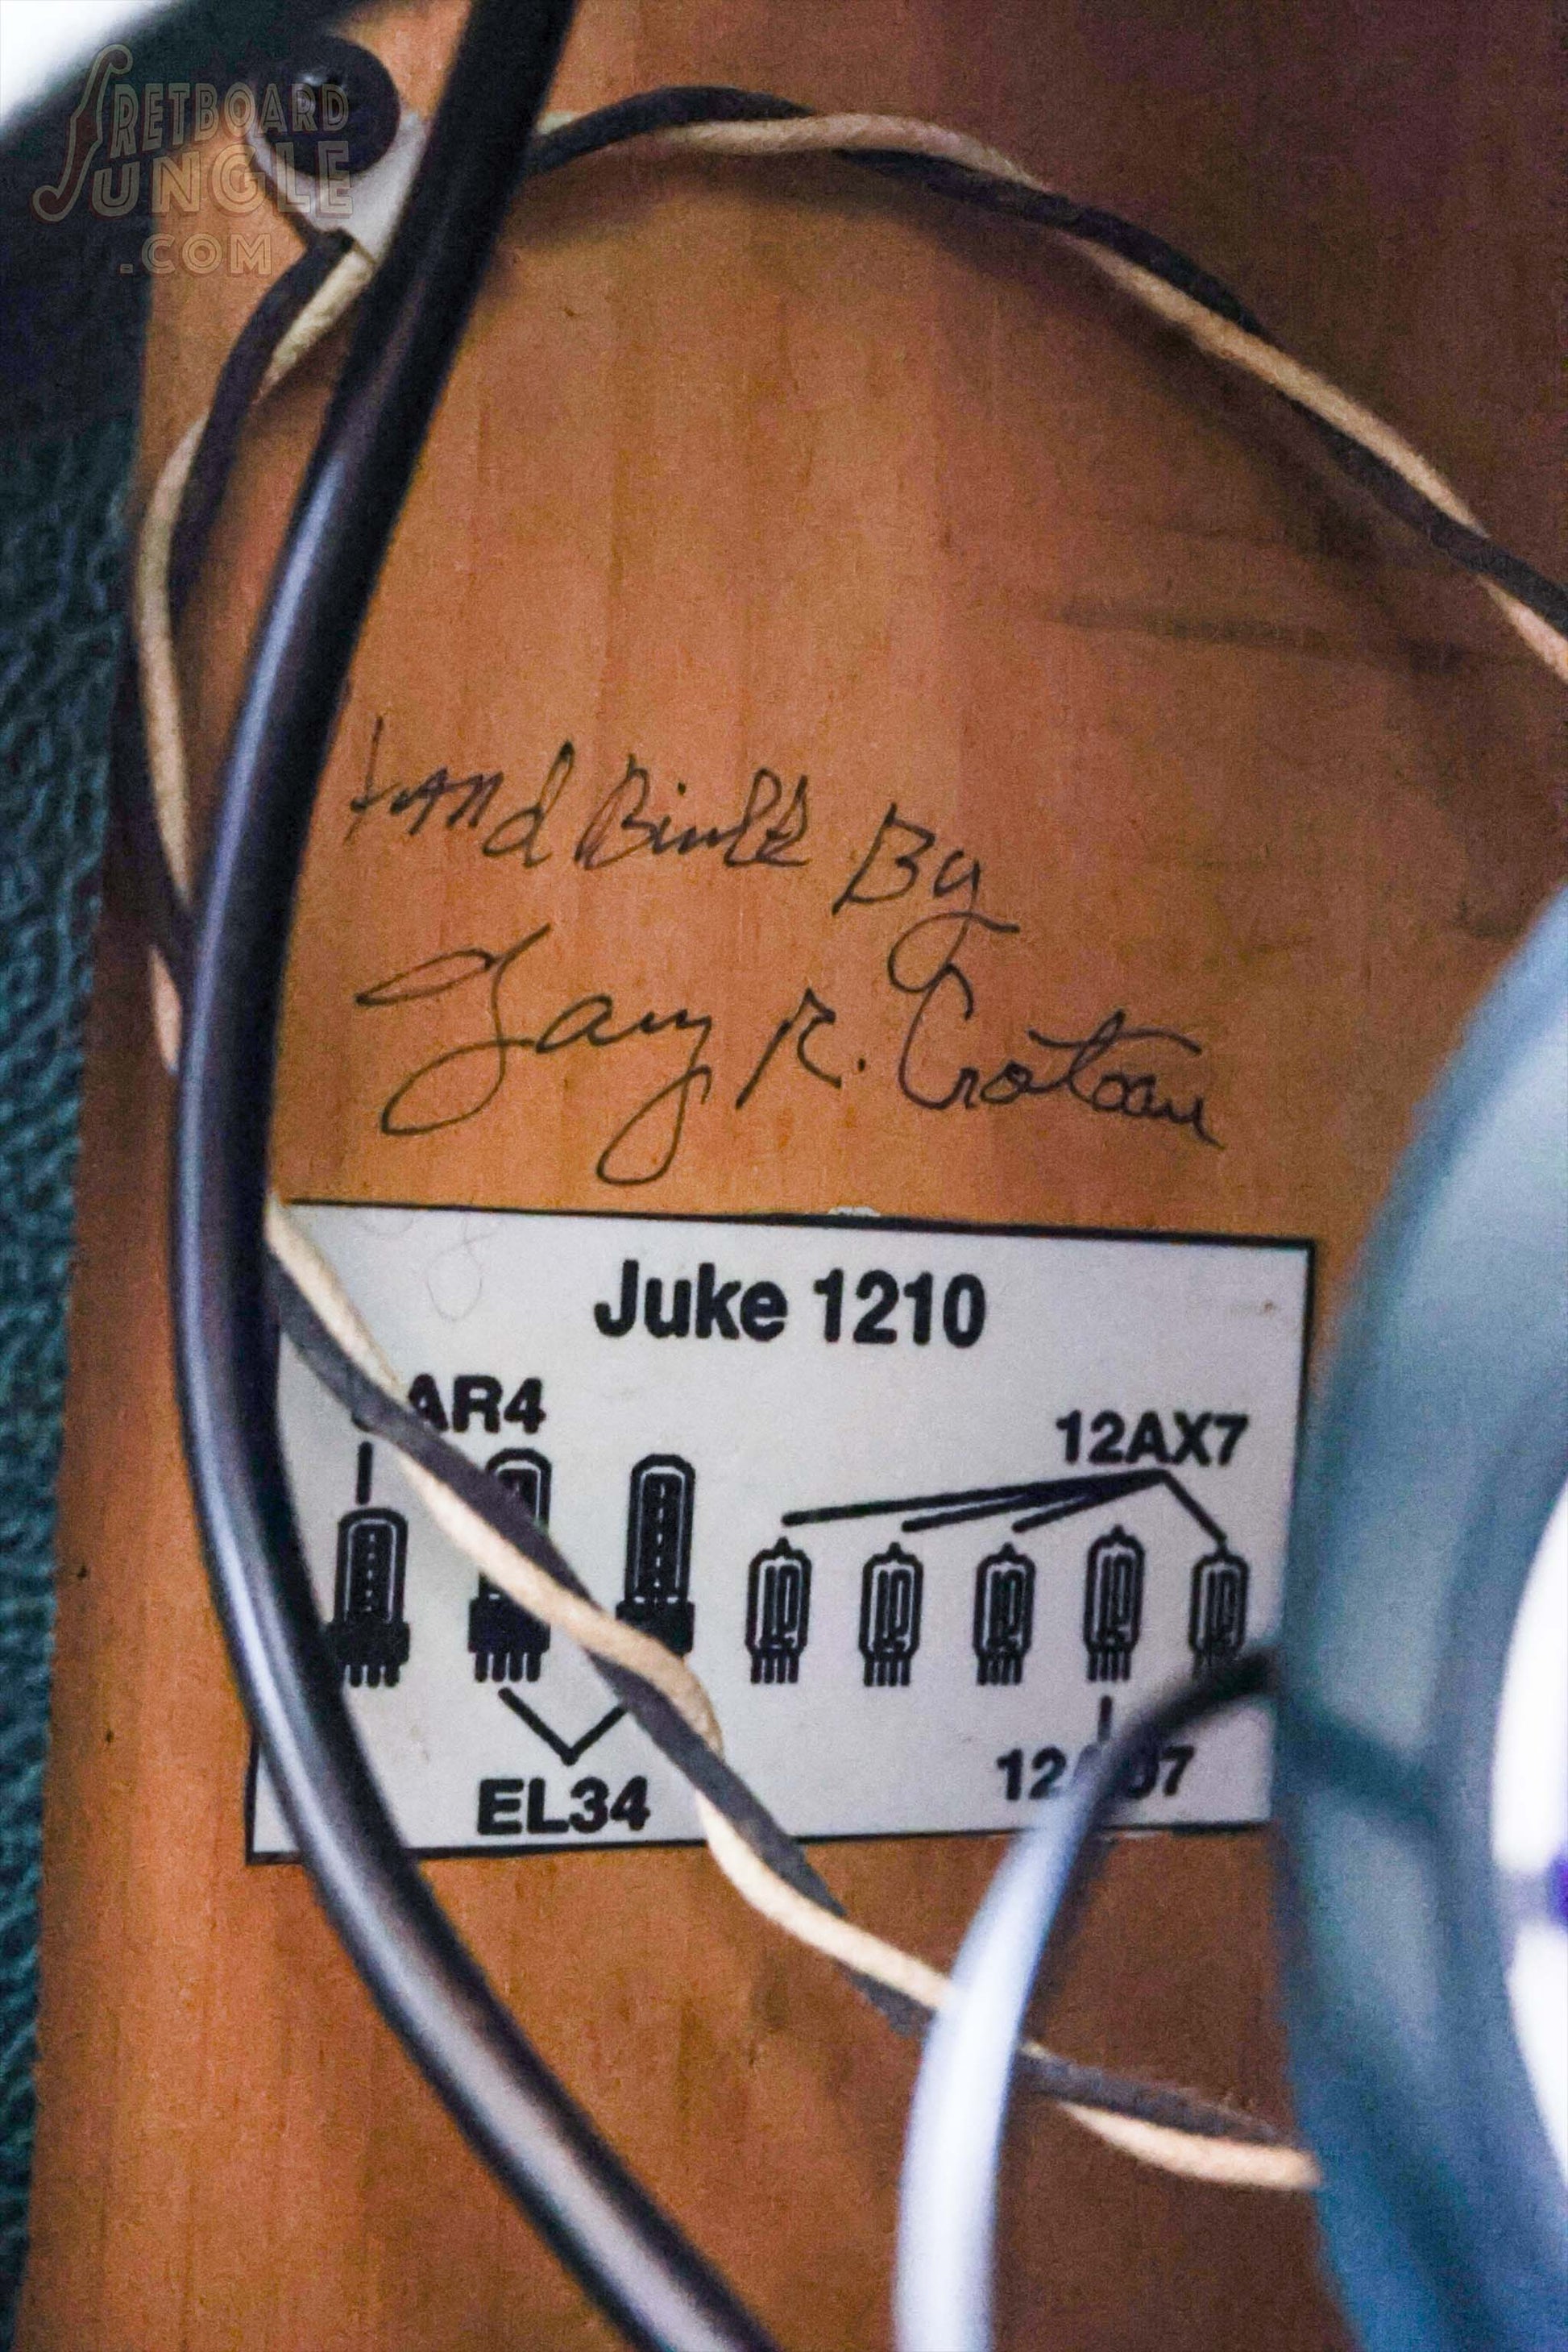 FRETBOARD
JUNGLE
.COM
Hand Built By
Gary R. Croteau
Juke 1210
AR4
12AX7
EL34